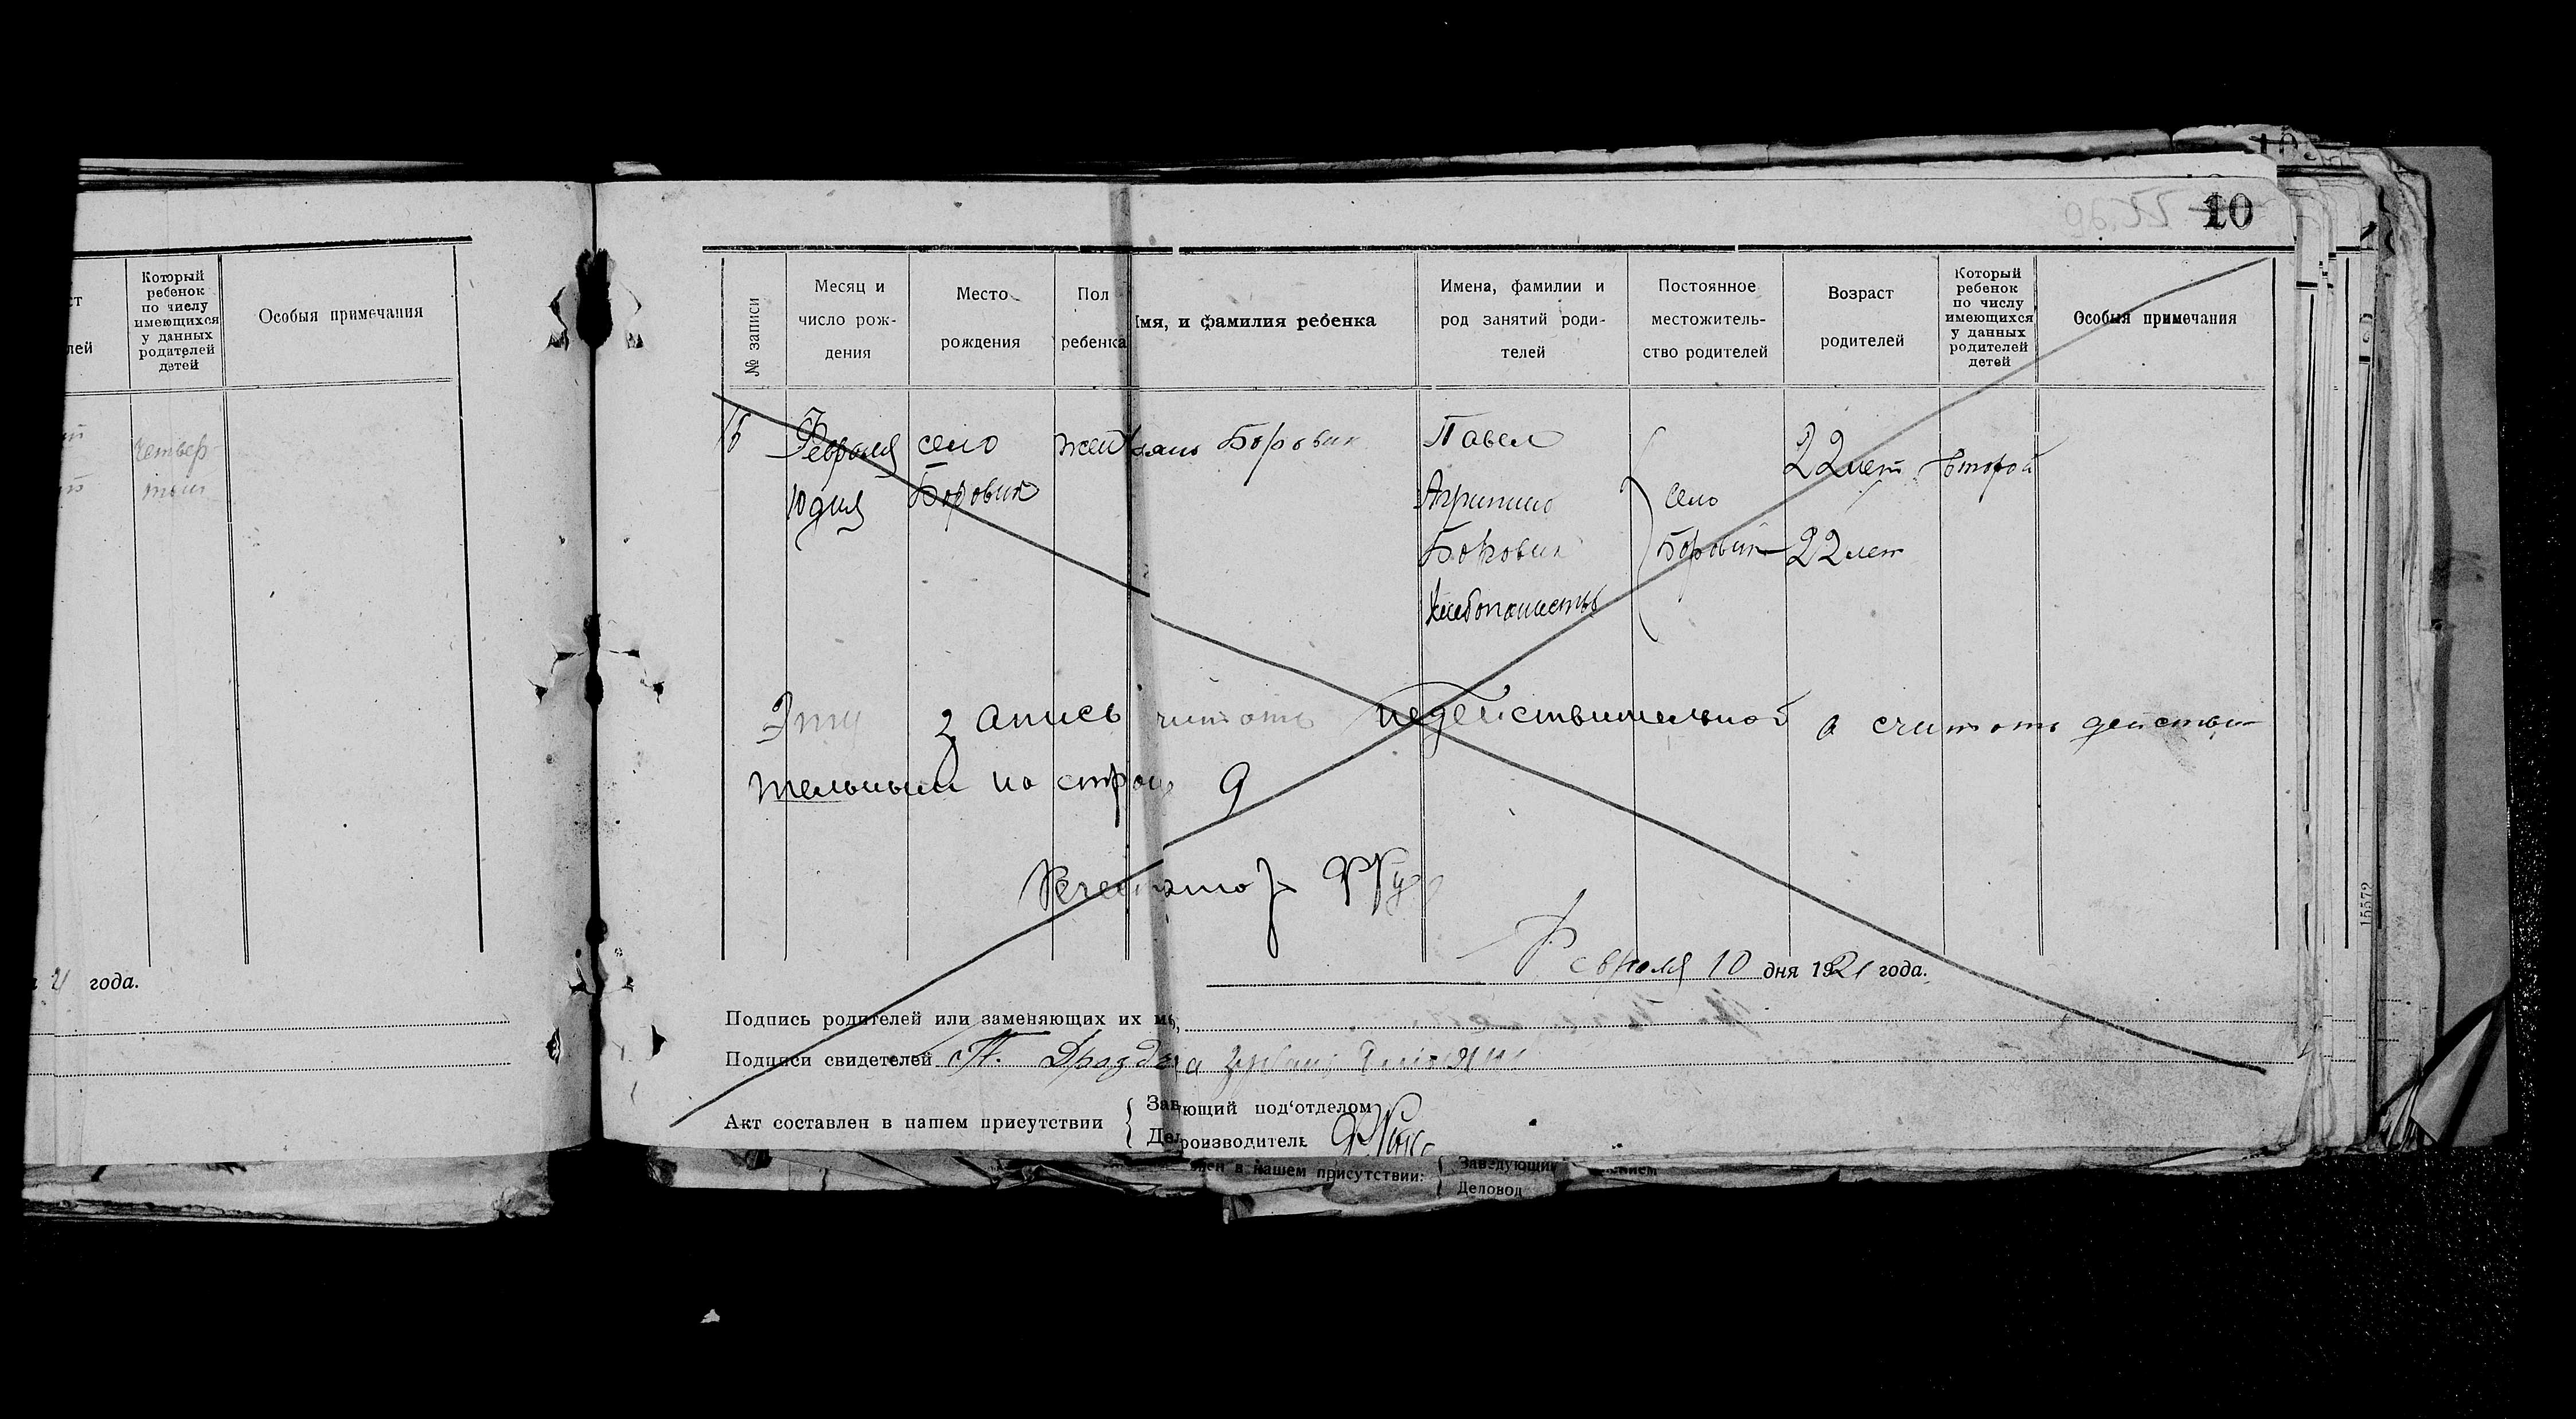 10
Который
ребенок
по числу
имеющихся
у данных
родителей
детей
Особыя примечания
четвер-
тый
года.
№ записи
Месяц и
число рож-
дения
Место
рождения
Пол
ребенка
мя, и фамилия ребенка
Имена, фамилии и
род занятий роди-
телей
Постоянное
местожитель-
ство родителей
Возраст
родителей
Который
ребенок
по числу
имеющихся
у данных
родителей
детей
Особыя примечания
Февраля село жен Боровик Павел 22 лет второй
10 дня Боровик Агрипина село
Боровик Боровик 22 лет
Хлебопашество
Эту запись читать недействительной а считать действи-
тельный на стран 9
Февраля 10 дня 1921 года.
Подпись родителей или заменяющих их
Подписи свидетелей
Акт составлен в нашем присутствии
ющий под'отделом
роизводитель
в нашем присутствии:
Заведующий
Деловод
15572